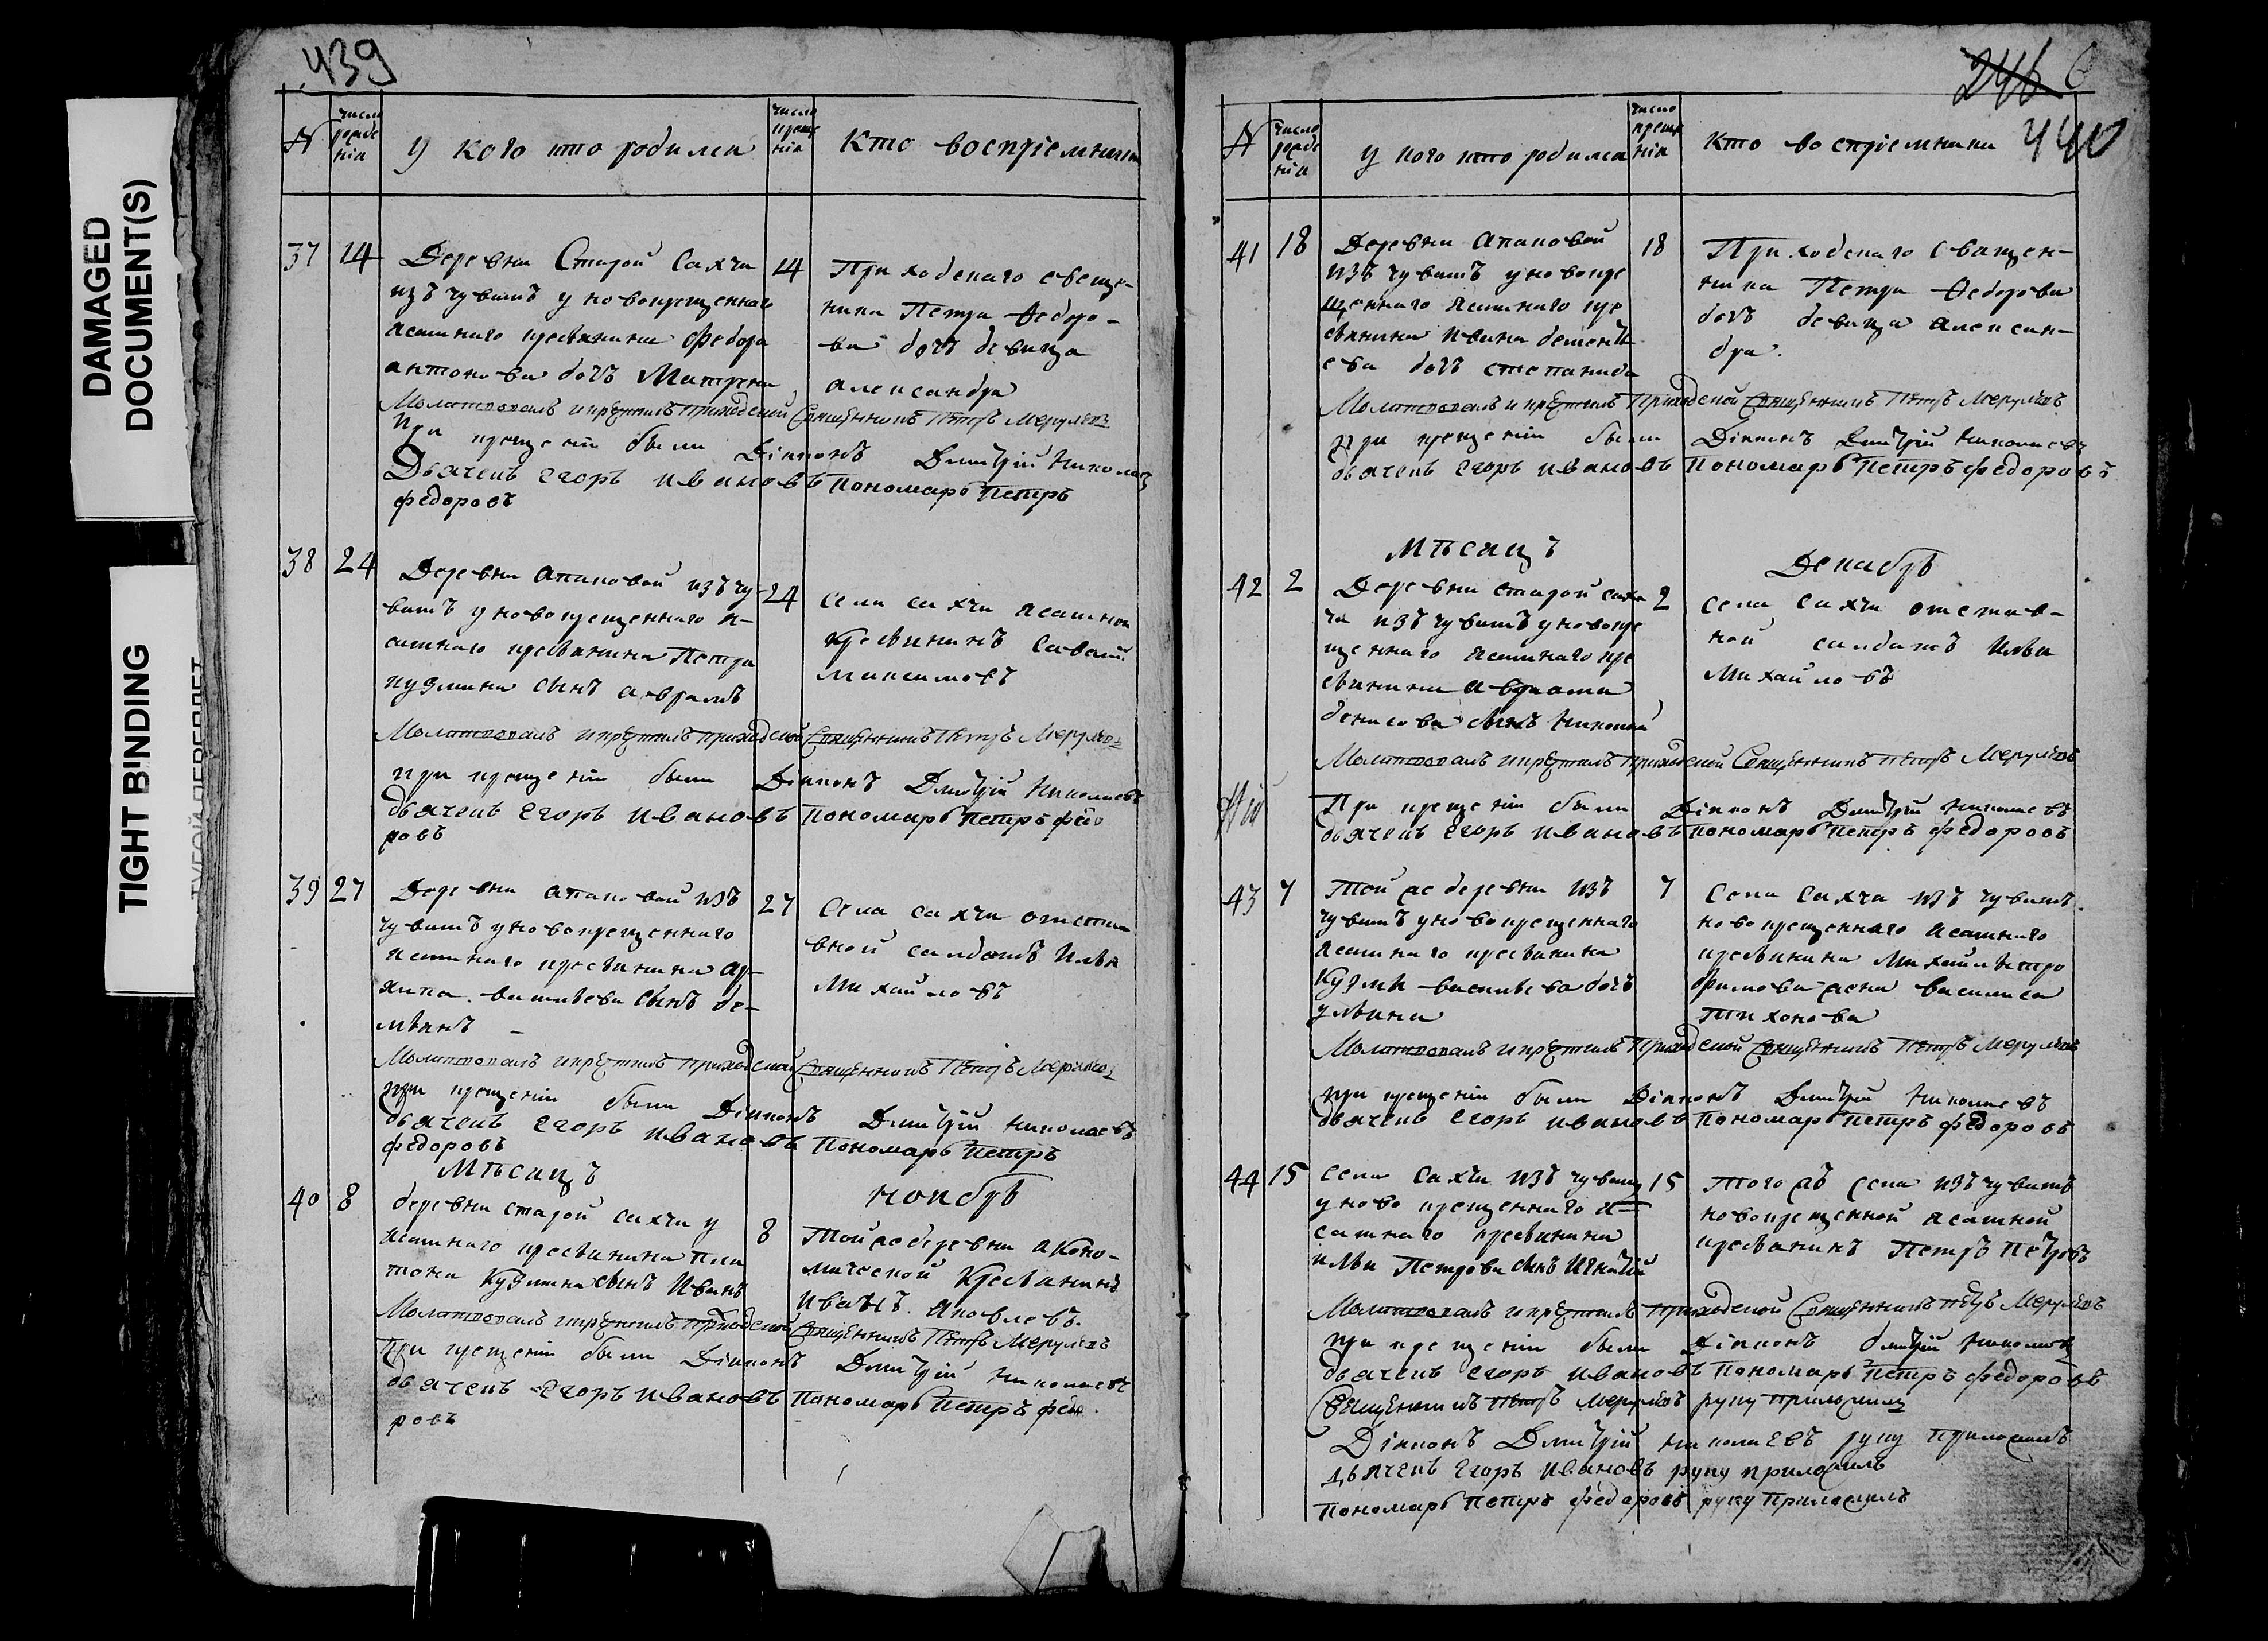 DAMAGED
DOCUMENT(S)
TIGHT BINDING
439
№
число рожде нія
у кого кто родился
число креще нія
Кто воспріемники
37
14
Деревни Старой Сахчи
изъ чувашъ у новокрещеннаго
ясашнаго крестьянина Федора
антонова дочь Матрена
14
Приходскаго свеще-
ника Петра Федоро-
ва дочь девица
александра
Молитвовалъ и крестилъ приходской Священникъ Петръ Меркульевъ
при крещеніи были Діяконъ Дмитрій Николаевъ
Дьячекъ Егоръ Ивановъ Пономарь Петръ
Федоровъ
38
24
Деревни апаковой изъ чу-
вашъ у новокрещеннаго я-
сашнаго крестьянина Петра
кузмина сынъ авраамъ
24
села сахчи ясашной
крестьянинъ Савелий
Максимовъ
Молитвовалъ и крестилъ приходской Священникъ Петръ Меркульевъ
при крещеніи были Діяконъ Дмитрій Николаевъ
дьячекъ Егоръ Ивановъ Пономарь Петръ Федо
ровъ
39
27
Деревни апаковой изъ
чувашъ у новокрещеннаго
ясашнаго крестьянина ар-
хипа васильева сынъ де-
мьянъ
27
Села сахчи отста-
вной салдатъ Илья
Михайловъ
Молитвовалъ и крестилъ приходской Священникъ Петръ Меркульевъ
при крещеніи были Діяконъ Дмитрій Николаевъ
дьячекъ Егоръ Ивановъ Пономарь Петръ
Федоровъ
Мѣсяцъ
Ноябрь
40
8
деревни старой сахчи у
ясашнаго крестьянина Пла
тона Кузмина сынъ Иванъ
8
Той же деревни Аконо-
мической Крестьянинъ
Иванъ Яковлевъ.
Молитвовалъ и крестилъ приходской Священникъ Петръ Меркульевъ
При крещеніи были Діяконъ Дмитрій Николаевъ
дьячекъ Егоръ Ивановъ Пономарь Петръ Федо
ровъ
246
440
№
число рожде нія
у кого кто родился
число креще нія
Кто воспріемники
41
18
Деревни апаковой
изъ чувашъ у новокре
щеннаго ясашнаго кре
стьянина Ивана дементь
ева дочь степанида
18
Приходскаго священ-
ника Петра Федорова
дочь девица алексан-
дра.
Молитвовалъ и крестилъ Приходской Священникъ Петръ Меркульевъ
при крещеніи были Діяконъ Дмитрій Николаевъ
дьячекъ Егоръ Ивановъ Пономарь Петръ Федоровъ
Мѣсяцъ
Декабрь
42
2
Деревни старой сах
чи изъ чувашъ у новокре
щеннаго ясашнаго кре
стьянина авраама
денисова сынъ Николай
2
села сахчи отстав-
ной салдатъ Илья
Михайловъ
Молитвовалъ и крестилъ приходской Священникъ Петръ Меркульевъ
При крещеніи были Діяконъ Дмитрій Николаевъ
дьячекъ Егоръ Ивановъ Пономарь Петръ Федоровъ
43
7
Той же деревни изъ
чувашъ у новокрещеннаго
ясашнаго крестьянина
Кузмы васильева дочь
ульяна
7
Села Сахчи изъ чувашъ
новокрещеннаго ясашнаго
крестьянина Михайла Митро
фанова жена василиса
Тихонова
Молитвовалъ и крестилъ Приходской Священникъ Петръ Меркульевъ
при крещеніи были Діяконъ Дмитрій Николаевъ
дьячекъ Егоръ Ивановъ Пономарь Петръ Федоровъ
44
15
села Сахчи изъ чувашъ
у новокрещеннаго я-
сашнаго крестьянина
ильи Петрова сынъ Игнатій
15
Того жъ села изъ чувашъ
новокрещенной ясашной
крестьянинъ Петръ Петровъ
Молитвовалъ и крестилъ приходской Священникъ Петръ Меркульевъ
при крещеніи были Діяконъ дмитрій Николаевъ
дьячекъ Егоръ Ивановъ Пономарь Петръ Федоровъ
Священникъ Петръ Меркульевъ руку приложилъ
Діяконъ Дмитрій Николаевъ руку приложилъ
дьячекъ Егоръ Ивановъ руку приложилъ
Пономарь Петръ Федоровъ руку приложилъ